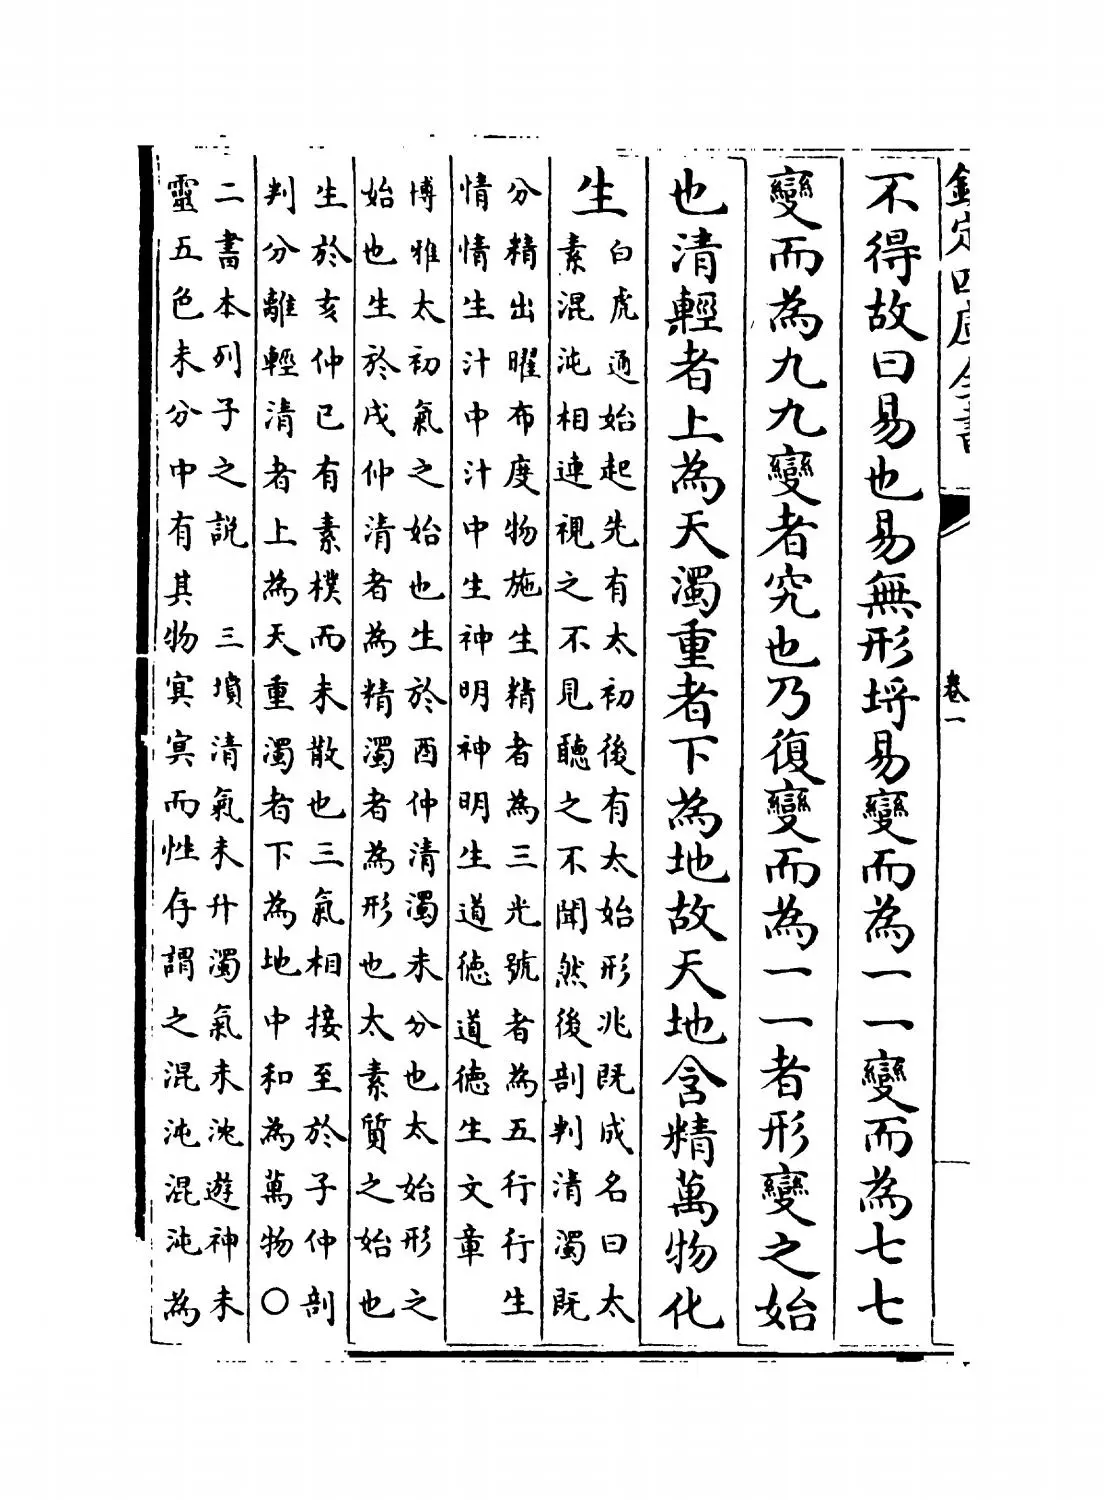 欽定四庫全書
卷一
不得故曰易也易無形埒易變而為一一變而為七七
變而為九九變者究也乃復變而為一一者形變之始
也清輕者上為天濁重者下為地故天地含精萬物化
生
白虎通始起先有太初後有太始形兆既成名曰太
素混沌相連視之不見聽之不聞然後剖判清濁既
分精出曜布度物施生精者為三光號者為五行行生
情情生汁中汁中生神明神明生道德道德生文章
博雅太初氣之始也生於酉仲清濁未分也太始形之
始也生於戌仲清者為精濁者為形也太素質之始也
生於亥仲已有素樸而未散也三氣相接至於子仲剖
判分離輕清者上為天重濁者下為地中和為萬物〇
二書本列子之說 三墳清氣未升濁氣未沈遊神未
靈五色未分中有其物冥冥而性存謂之混沌混沌為